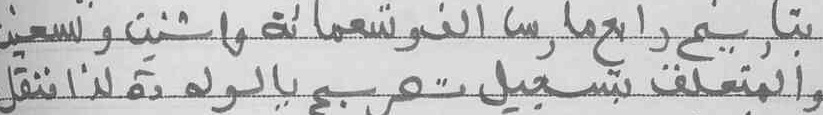 بتاريخ رابع مارس الف وتسعمائة واثنين وتسعين
والمتعلق بتسجيل تصريح بالولادة لذا ننتقل